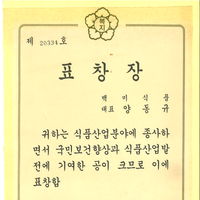 복지
제 20334 호
표창장
백미식품
대표 양동규
귀하는 식품산업분야에 종사하
면서 국민보건향상과 식품산업발
전에 기여한 공이 크므로 이에
표창함